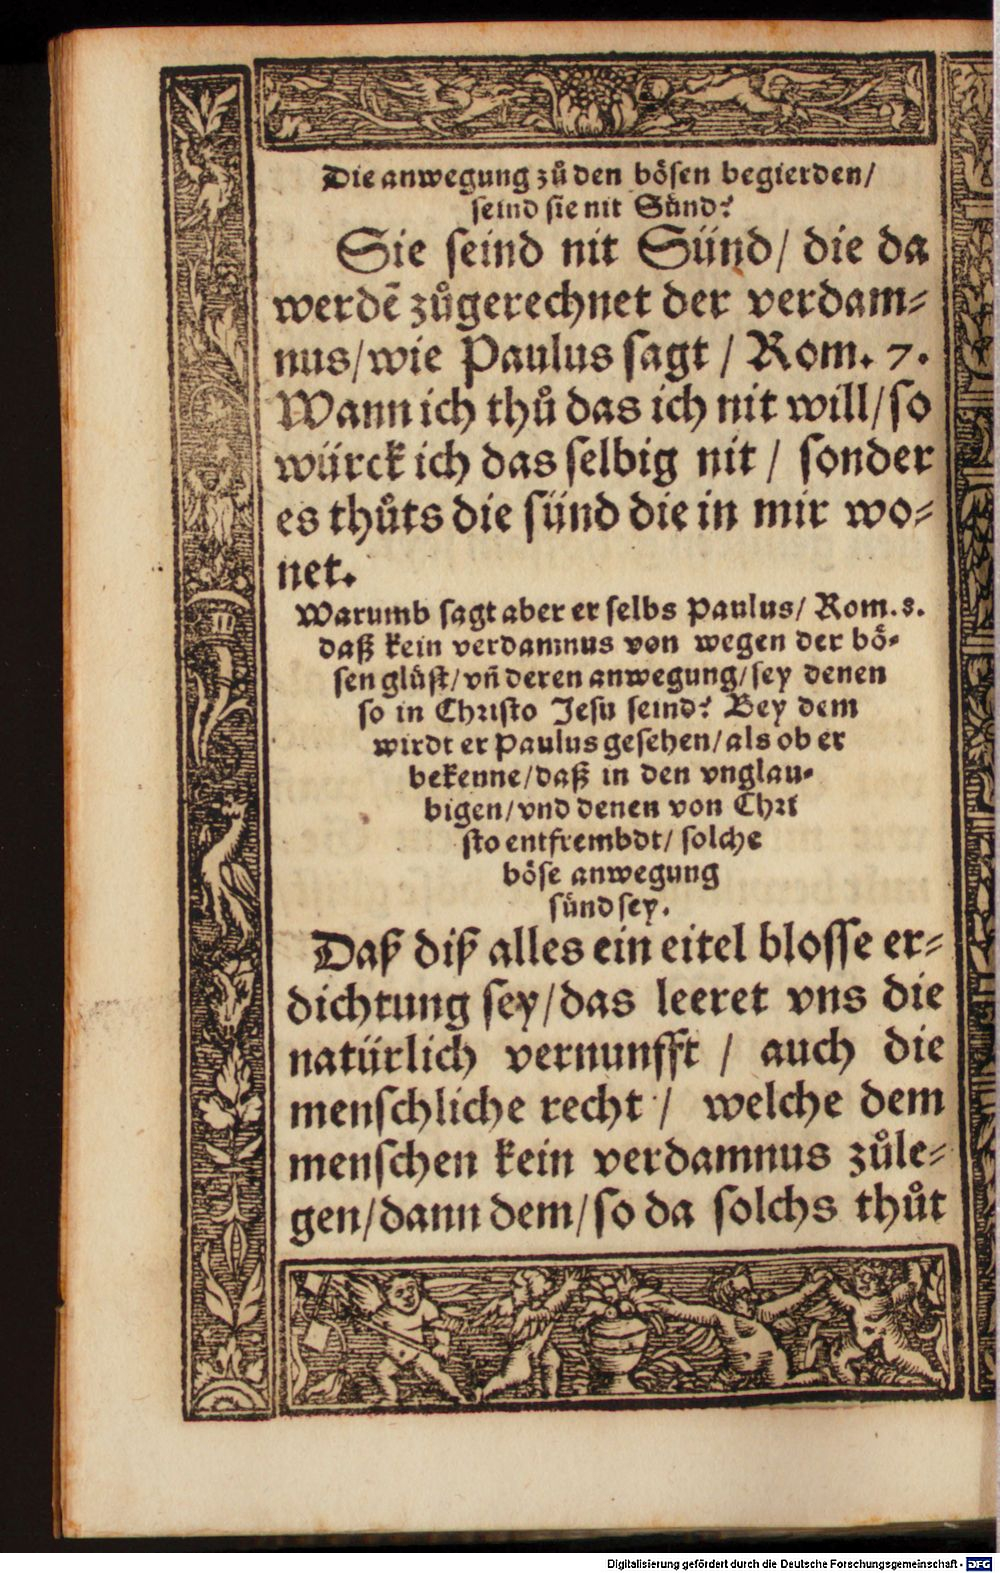 Die anwegung zů den bösen begierden/
seind sie nit Sünd?
Sie seind nit Sünd/ die da
werdē zůgerechnet der verdam⸗
nus/wie Paulus sagt / Rom. 7.
Wann ich thů das ich nit will/so
würck ich das selbig nit / sonder
es thůts die sünd die in mir wo⸗
net.
Warumb sagt aber er selbs Paulus/ Rom. 8.
daß kein verdamnus von wegen der bö⸗
sen glüst/vñ deren anwegung/sey denen
so in Christo Jesu seind? Bey dem
wirdt er Paulus gesehen/als ob er
bekenne/daß in den vnglau⸗
bigen/vnd denen von Chri
sto entfrembdt/ solche
böse anwegung
sünd sey.
Daß diß alles ein eitel blosse er⸗
dichtung sey/das leeret vns die
natürlich vernunfft / auch die
menschliche recht / welche dem
menschen kein verdamnus zůle⸗
gen/dann dem/so da solchs thůt
Digitalisierung gefördert durch die Deutsche Forschungsgemeinschaft - DFG